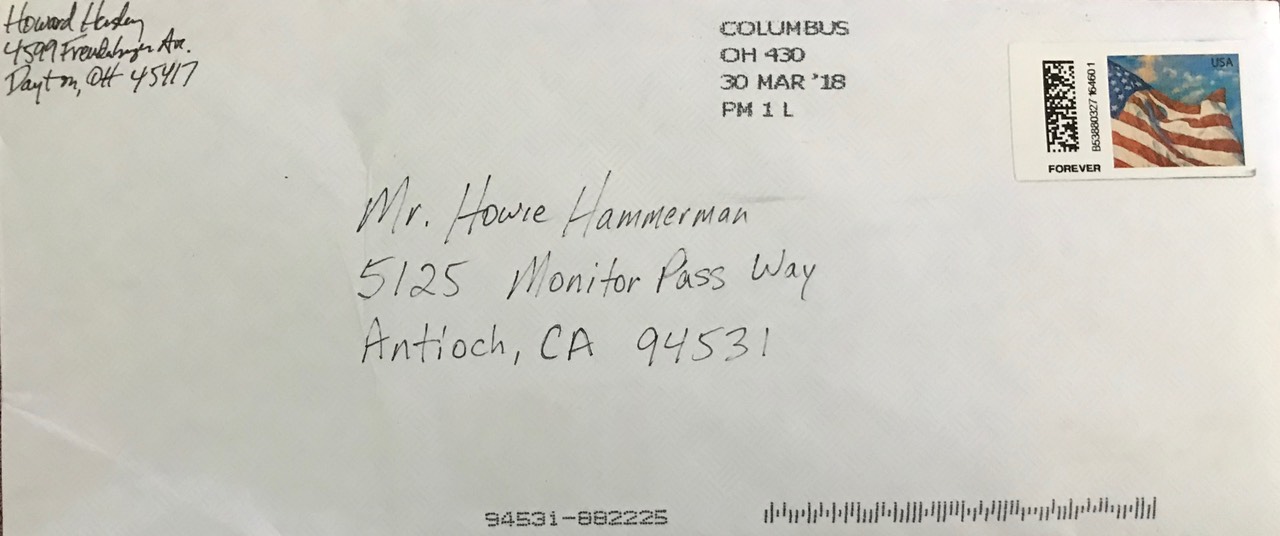 Howard
4599 Ave.
Dayton, OH 45417
COLUMBUS
OH 430
30 MAR '18
PM 1 L
USA
B53880327164601
FOREVER
Mr. Howie Hammerman
5125 Monitor Pass Way
Antioch, CA 94531
94531-882225